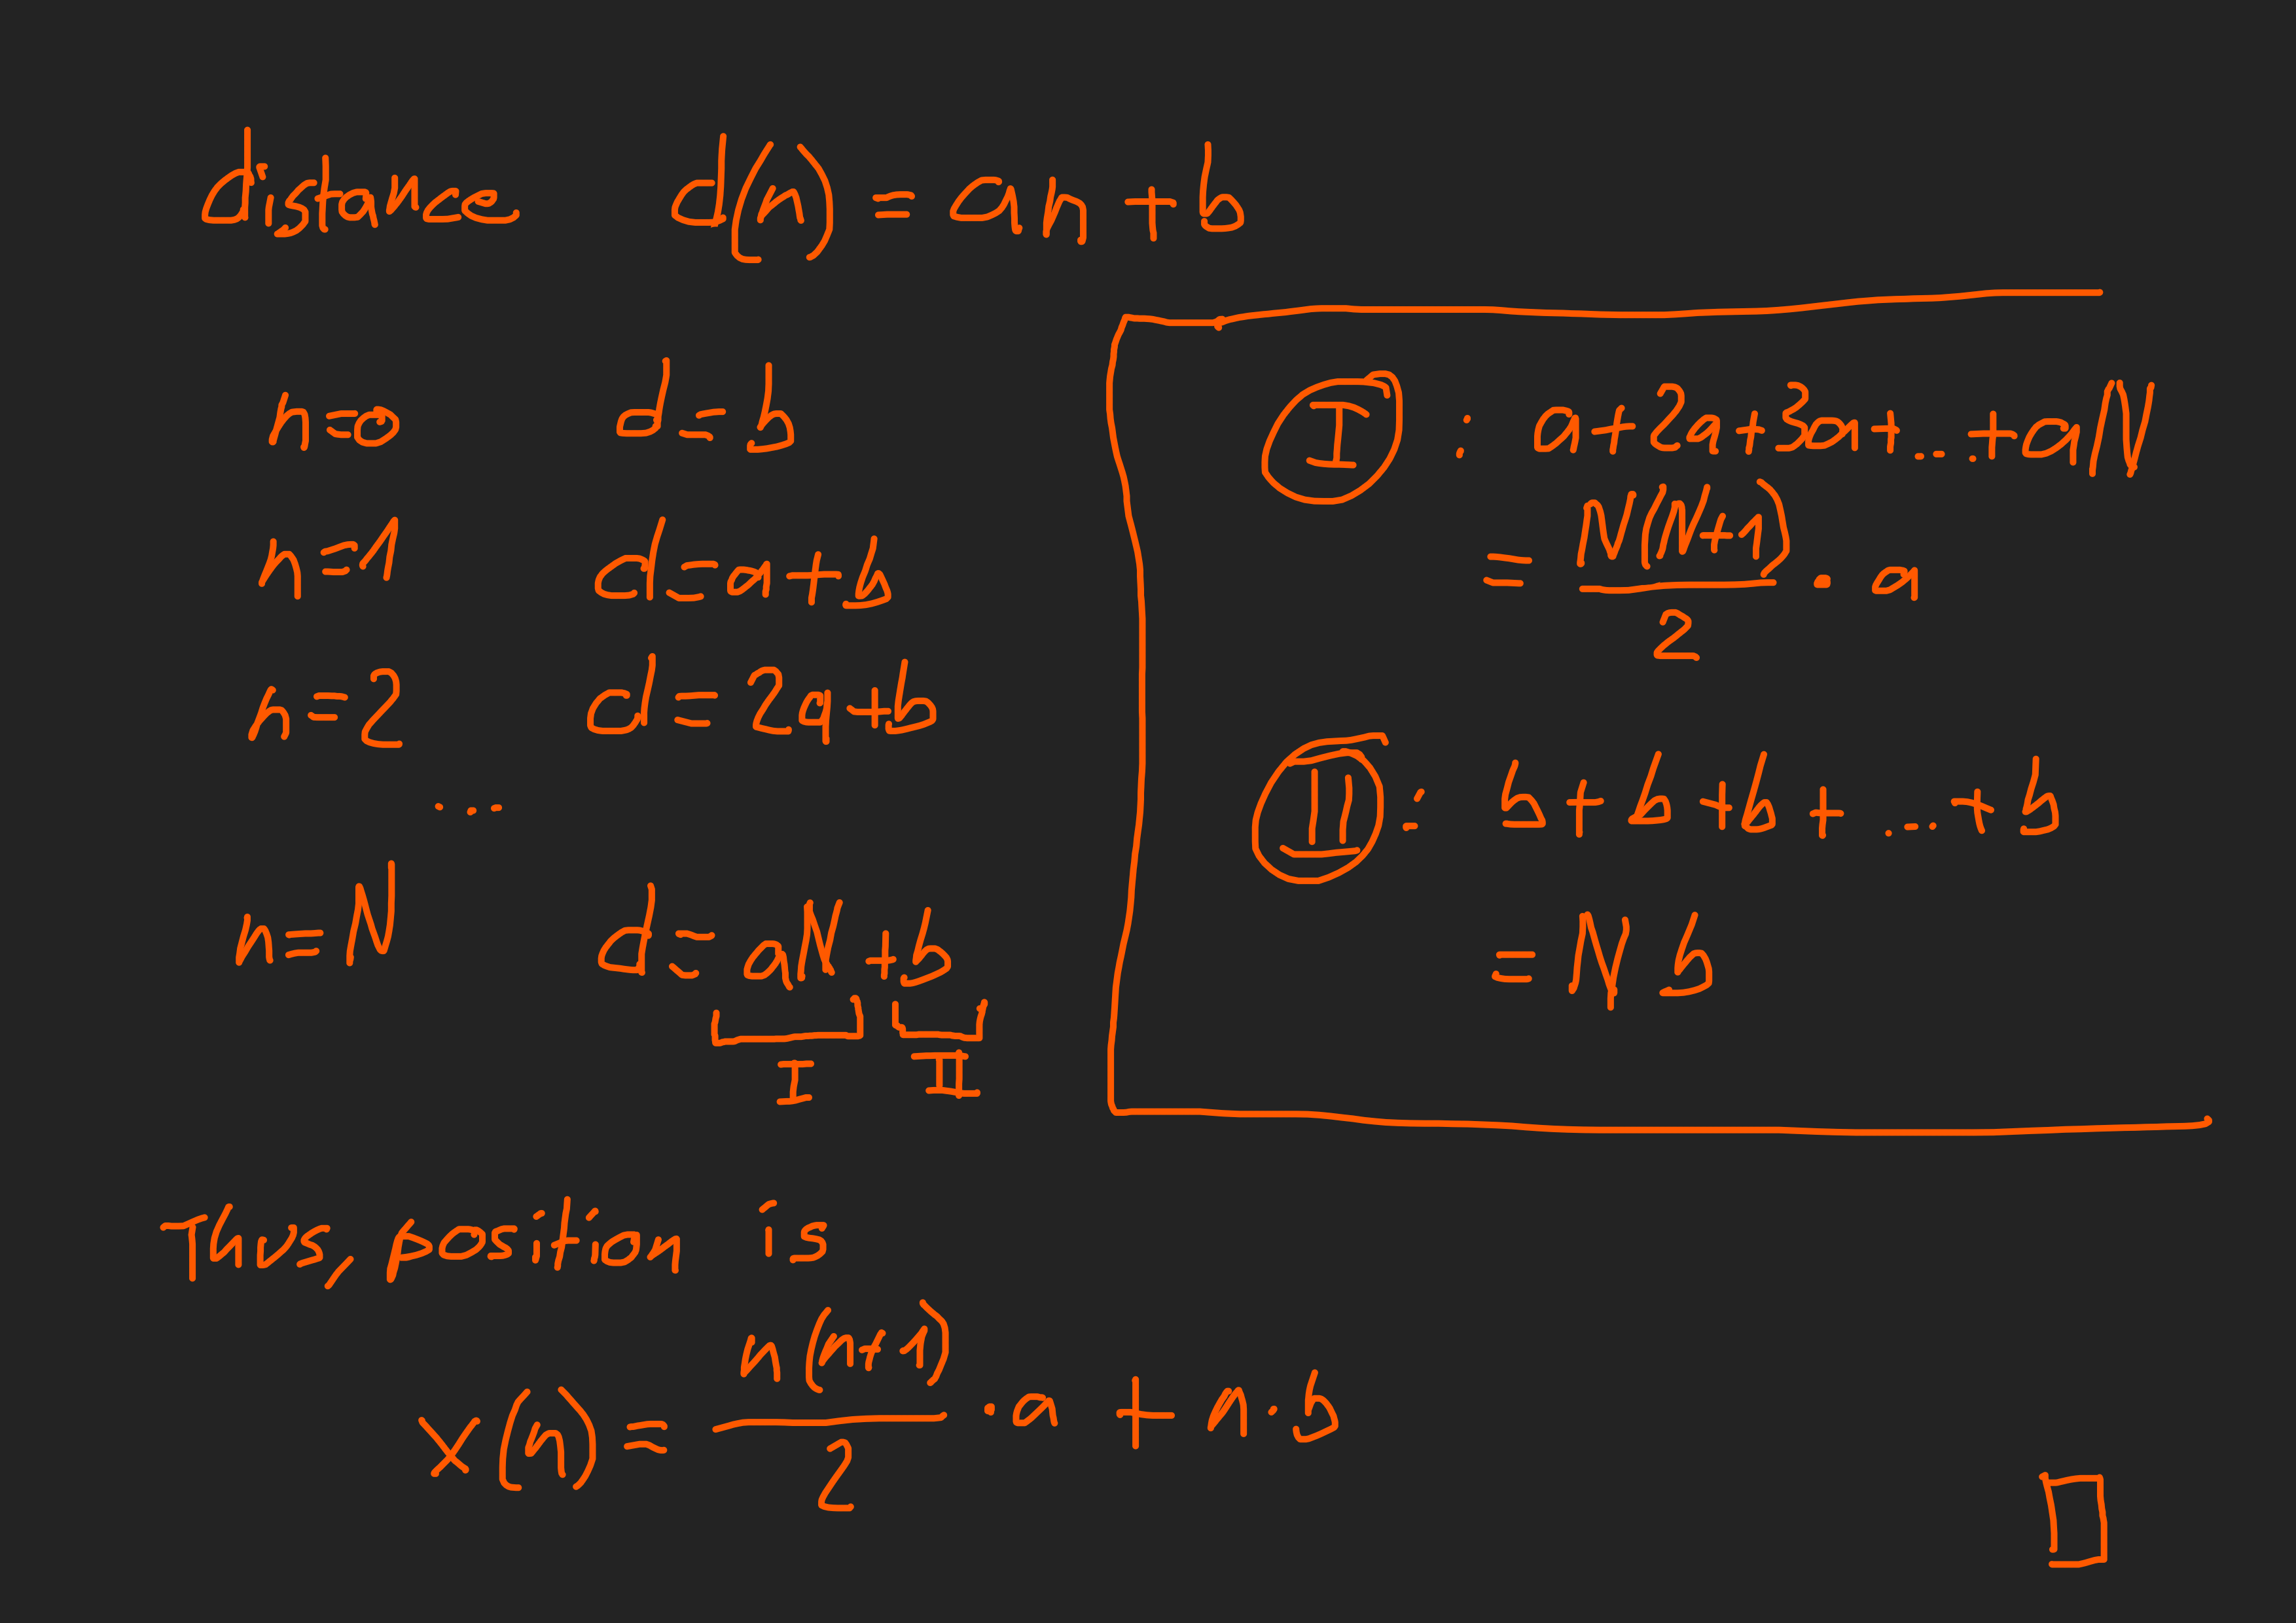 distance d(n) = an + b
n=0 d=b
n=1 d=a+b
n=2 d=2a+b
...
n=N d=aN+b
I II
I : a+2a+3a+...+aN
= N(N+1)/2 · a
II : b+b+b+...+b
= N b
Thus, position is
x(n) = n(n+1)/2 · a + n·b